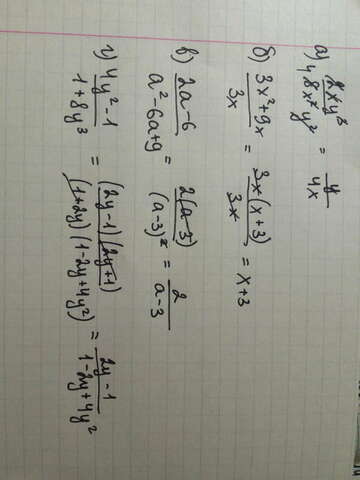 а) 2xy³/48x²y² = y/4x
б) 3x²+9x/3x = 3x(x+3)/3x = x+3
в) 2a-6/a²-6a+9 = 2(a-3)/(a-3)² = 2/a-3
г) 4y²-1/1+8y³ = (2y-1)(2y+1)/(1+2y)(1-2y+4y²) = 2y-1/1-2y+4y²